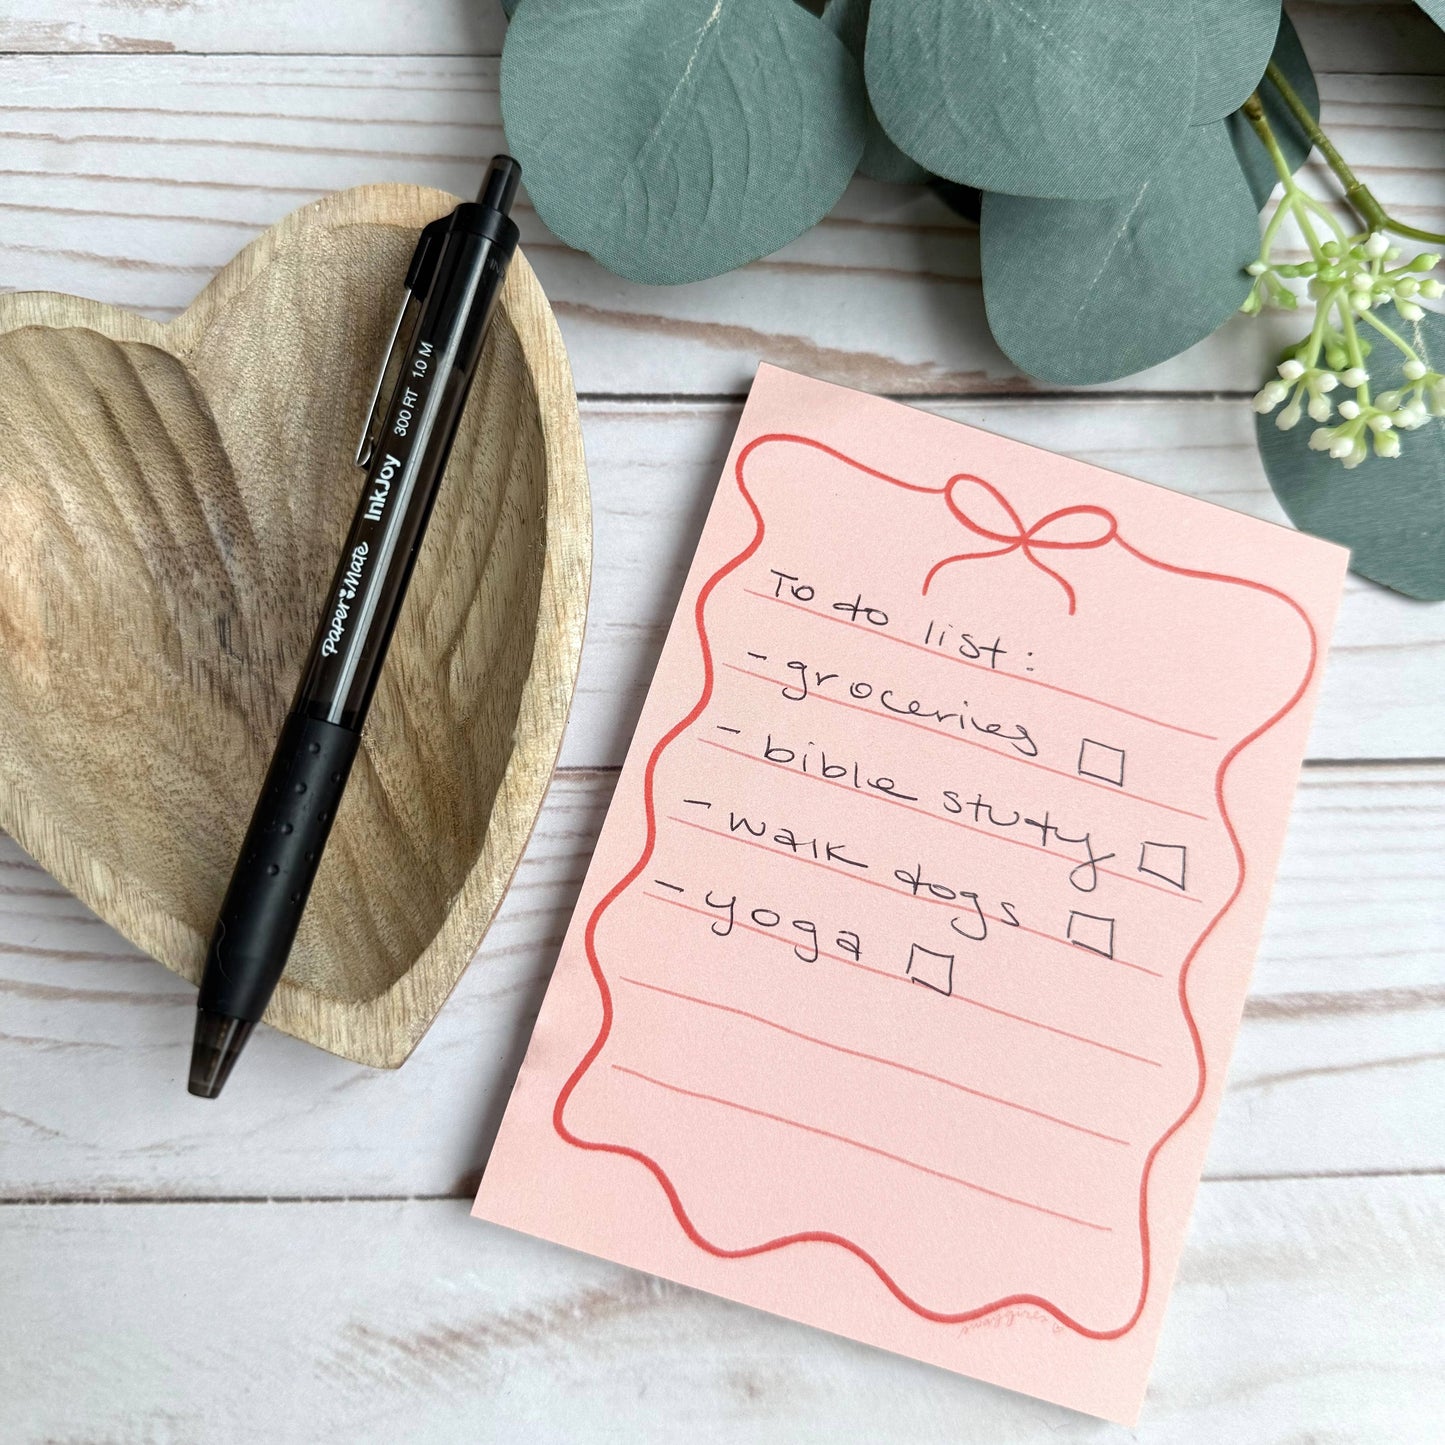 Paper Mate InkJoy 300 RT 1.0 M
To do list:
- groceries
- bible study
- walk dogs
- yoga